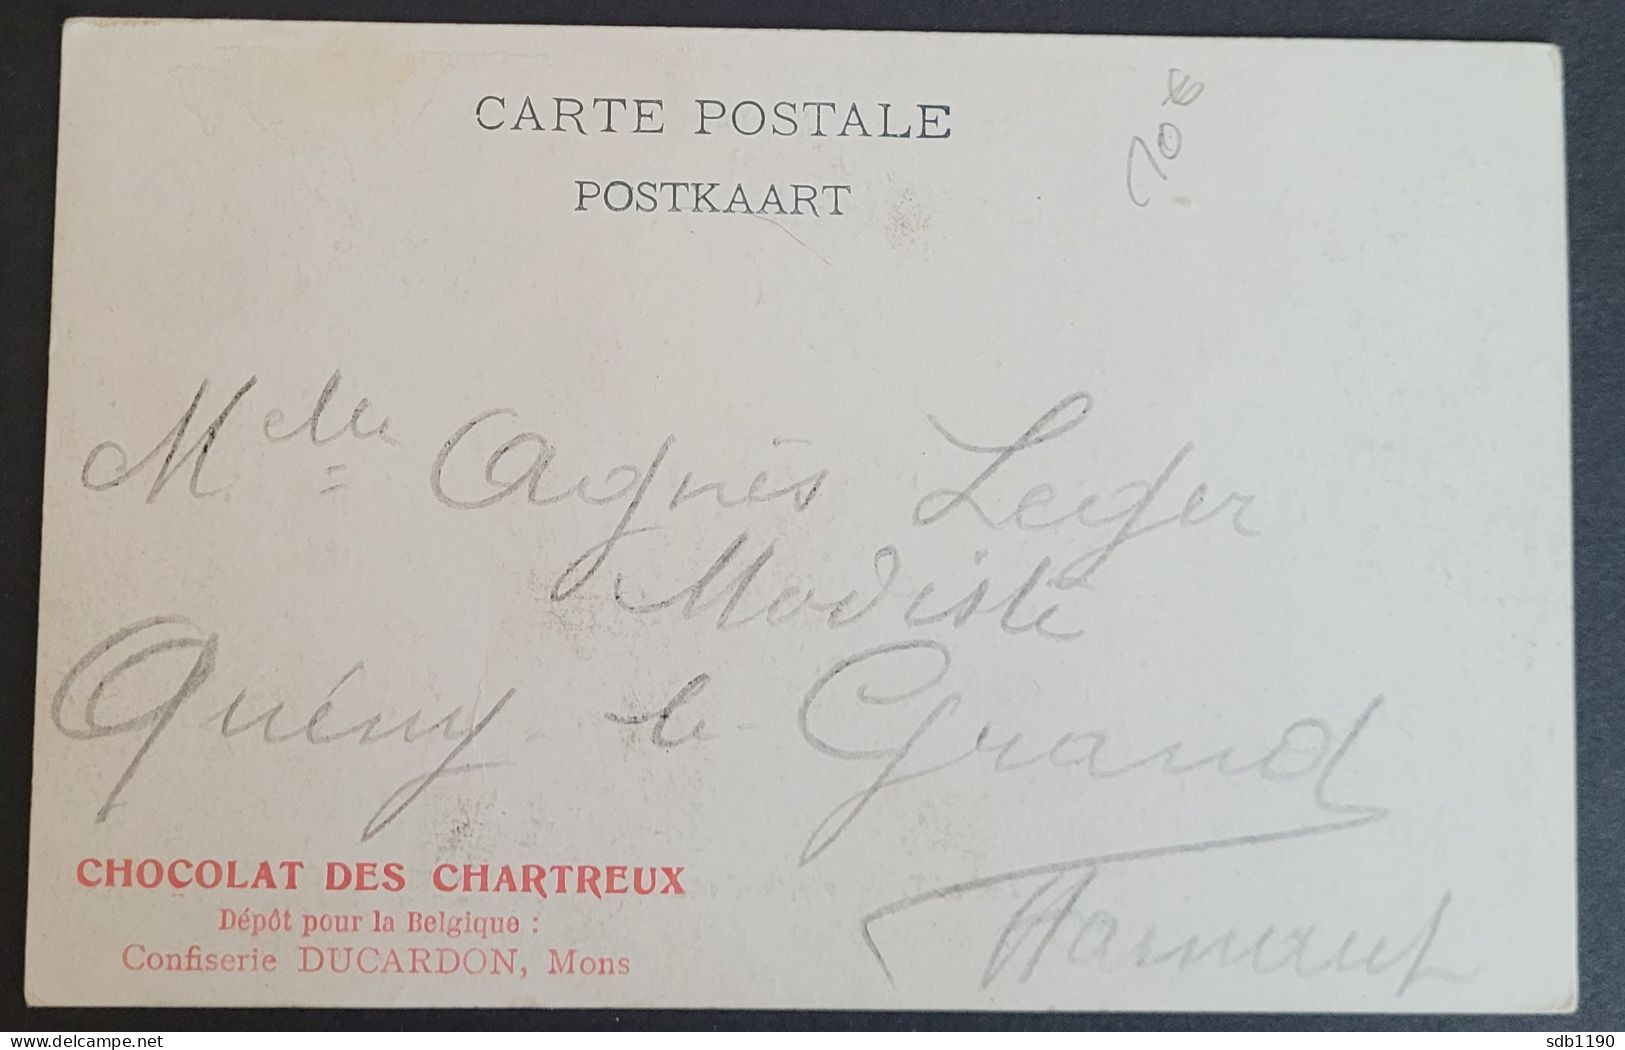 CARTE POSTALE
POSTKAART
10 €
Melle Agnès Leger
Modiste
Quémy-le-Grand
Hainaut
CHOCOLAT DES CHARTREUX
Dépôt pour la Belgique :
Confiserie DUCARDON, Mons
sdb1190